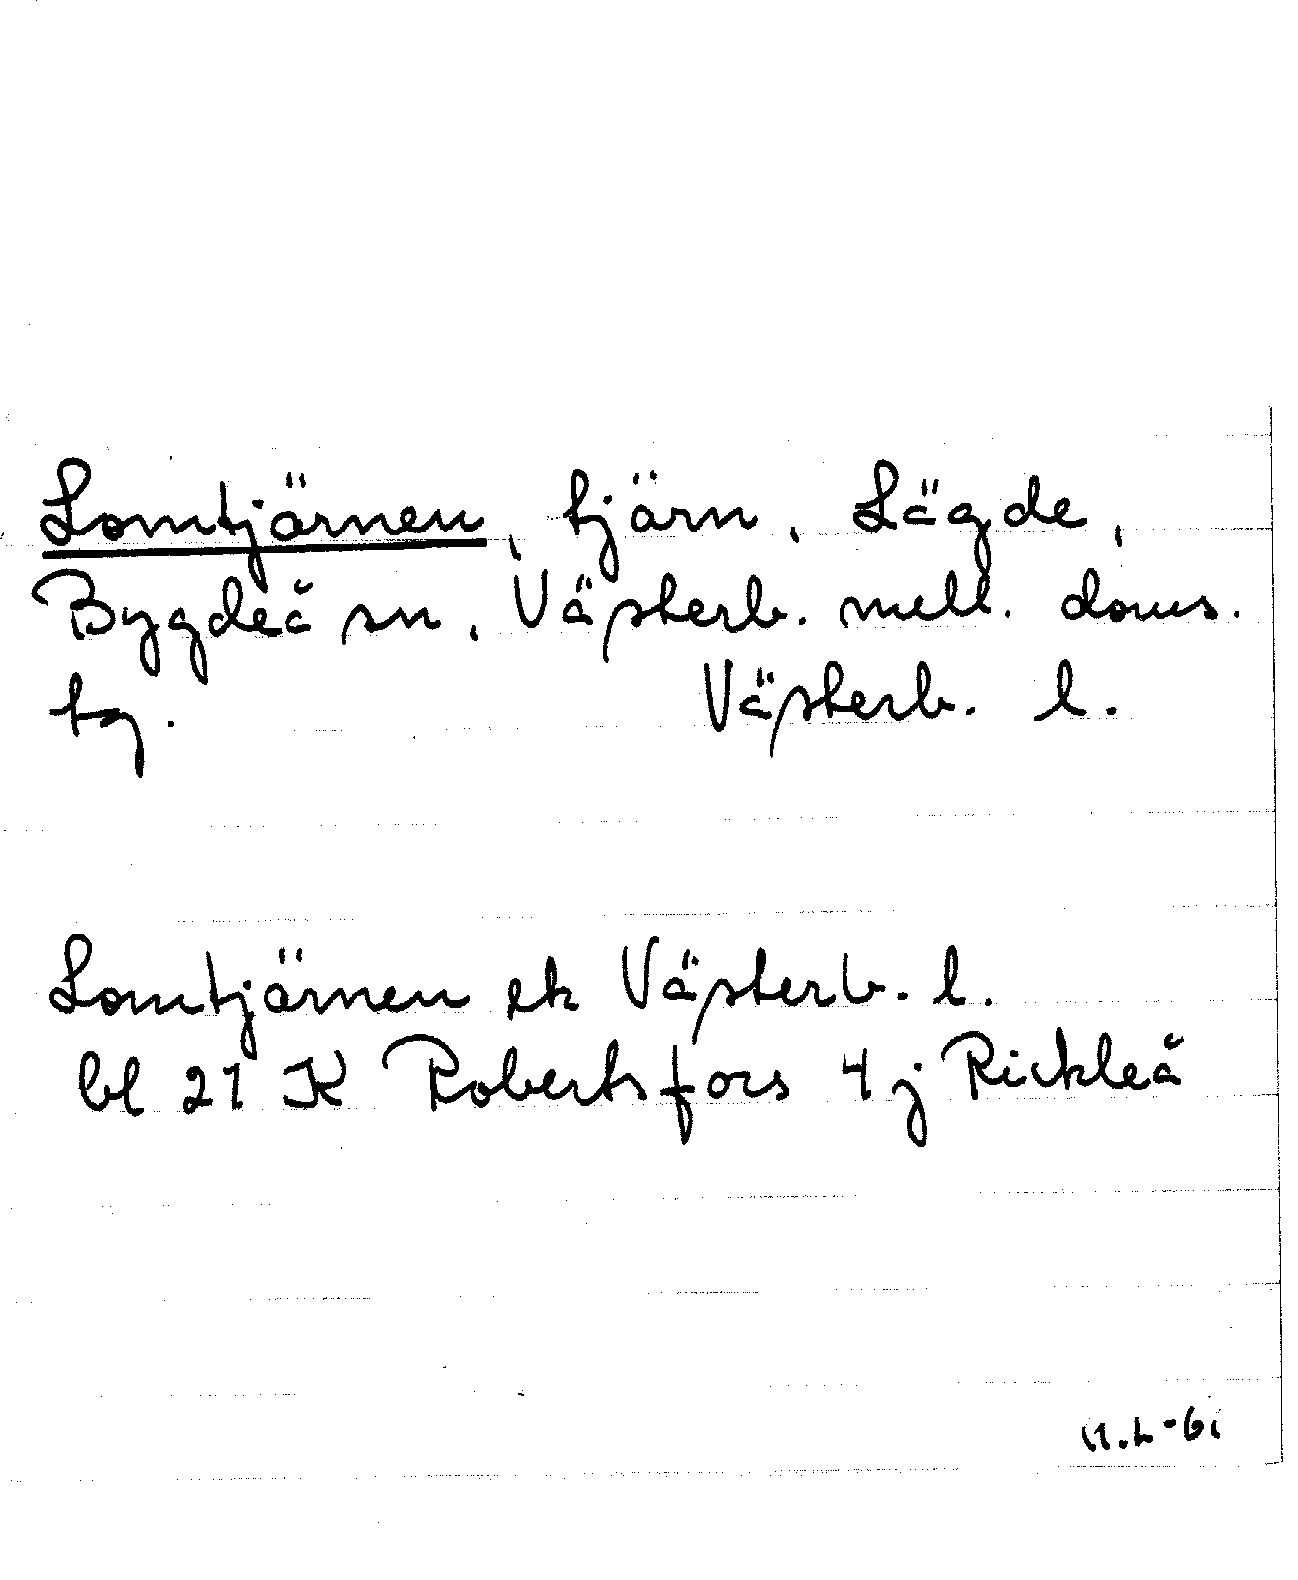 Lomtjärnen, tjärn, Lägde,
Bygdeå sn, Västerb. mell. doms.
tg. Västerb. l.
Lomtjärnen ek Västerb. l.
bl 21 K Robertsfors 4 j Rickleå